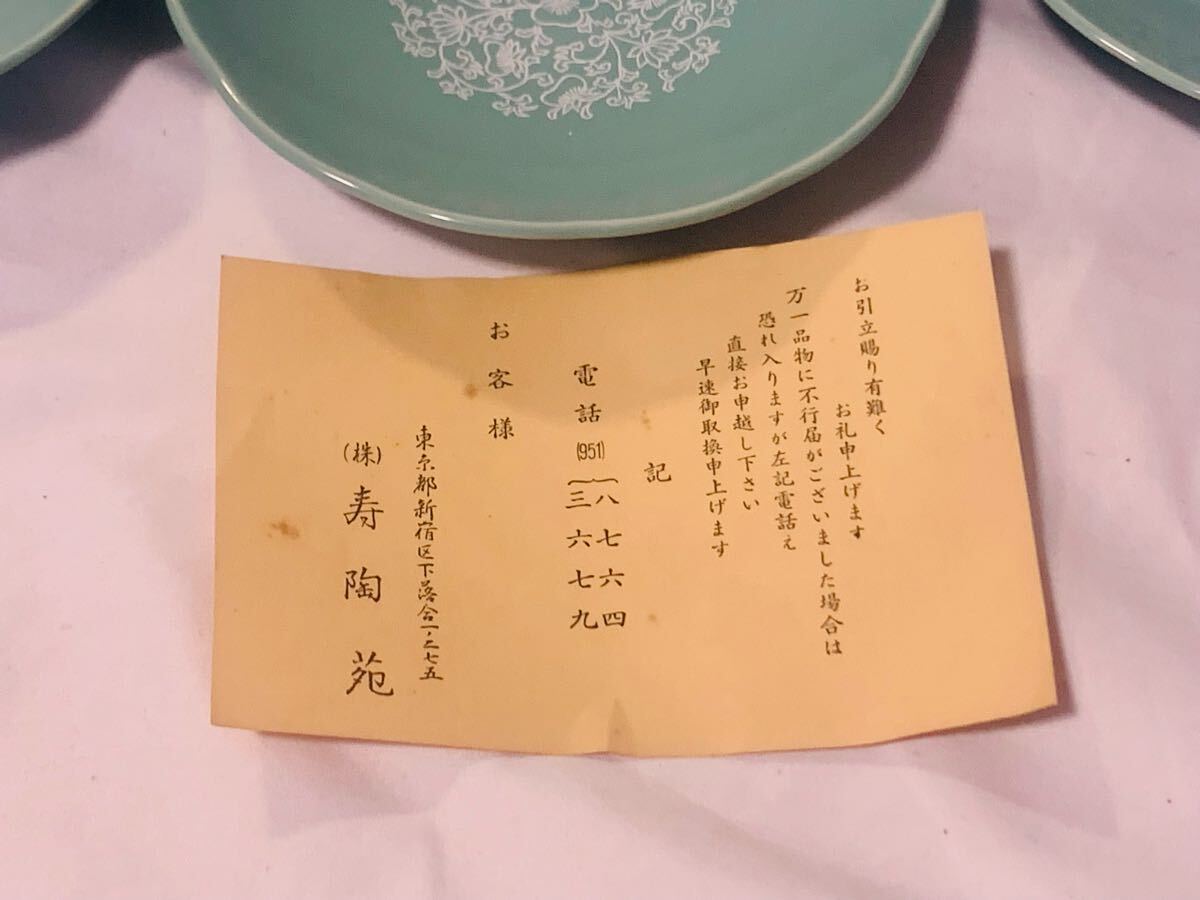 お引立賜り有難く
お礼申上げます
万一品物に不行届がございました場合は
恐れ入りますが左記電話え
直接お申越し下さい
早速御取換申上げます
記
電話(951){八七六四
三六七九
お客様
東京都新宿区下落合一ノ二七五
(株)寿陶苑